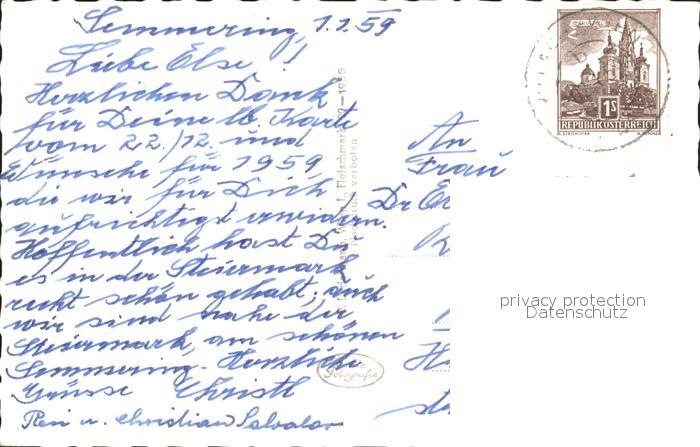 Semmering, 1.1.59
Liebe Else!
Herzlichen Dank
für Deine lb. Karte
vom 22./12. und
Wünsche für 1959
die wir für Dich
aufrichtigst erwidern.
Hoffentlich hast Du
es in der Steiermark
recht schön gehabt; auch
wir sind nahe der
Steiermark, am schönen
Semmering. Herzliche
Grüsse Christl
u. Christian Salvator
An
Frau
Dr
1S
REPUBLIK ÖSTERREICH
privacy protection
Datenschutz